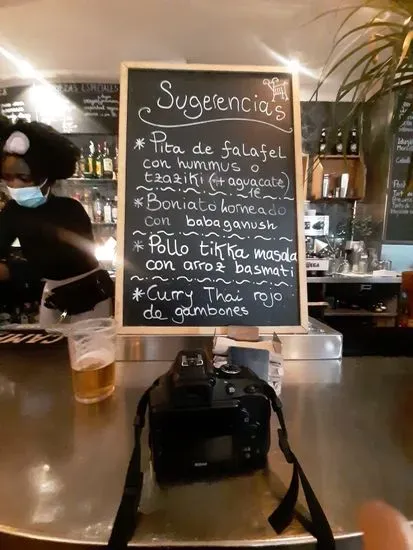 VEZAS ESPECIALES
Sugerencias
* Pita de falafel
con hummus o
tzaziki (+ aguacate)
1€
* Boniato horneado
con babaganush
* Pollo tikka masala
con arroz basmati
* Curry Thai rojo
de gambones
Nikon